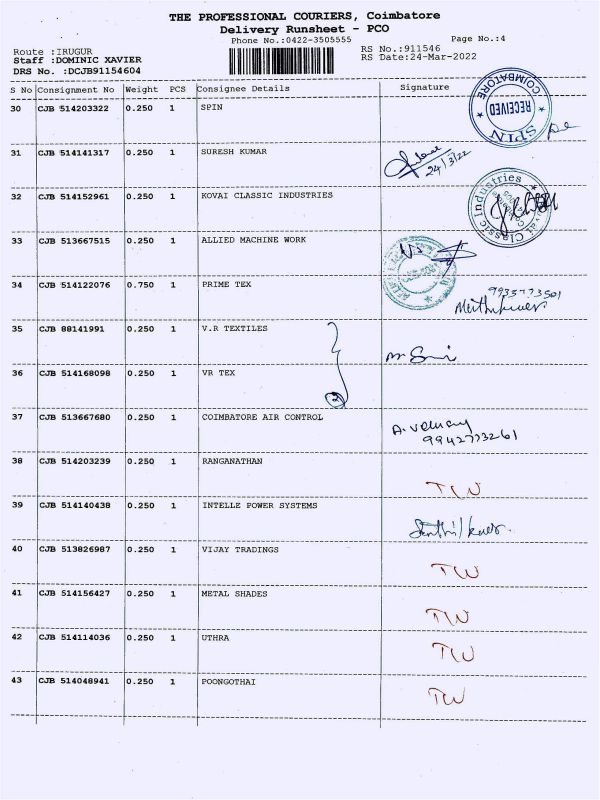 THE PROFESSIONAL COURIERS, Coimbatore
Delivery Runsheet - PCO
Phone No.:0422-3505555 Page No.:4
Route :IRUGUR RS No.:911546
Staff :DOMINIC XAVIER RS Date:24-Mar-2022
DRS No. :DCJB91154604
S No Consignment No Weight PCS Consignee Details Signature
30 CJB 514203322 0.250 1 SPIN
COIMBATORE RECEIVED SPIN
31 CJB 514141317 0.250 1 SURESH KUMAR
24/3/22
32 CJB 514152961 0.250 1 KOVAI CLASSIC INDUSTRIES
Classic Industries
33 CJB 513667515 0.250 1 ALLIED MACHINE WORK
34 CJB 514122076 0.750 1 PRIME TEX
35 CJB 88141991 0.250 1 V.R TEXTILES
36 CJB 514168098 0.250 1 VR TEX
2
37 CJB 513667680 0.250 1 COIMBATORE AIR CONTROL
9942773261
38 CJB 514203239 0.250 1 RANGANATHAN
TW
39 CJB 514140438 0.250 1 INTELLE POWER SYSTEMS
40 CJB 513826987 0.250 1 VIJAY TRADINGS
TW
41 CJB 514156427 0.250 1 METAL SHADES
TW
42 CJB 514114036 0.250 1 UTHRA
TW
43 CJB 514048941 0.250 1 POONGOTHAI
TW